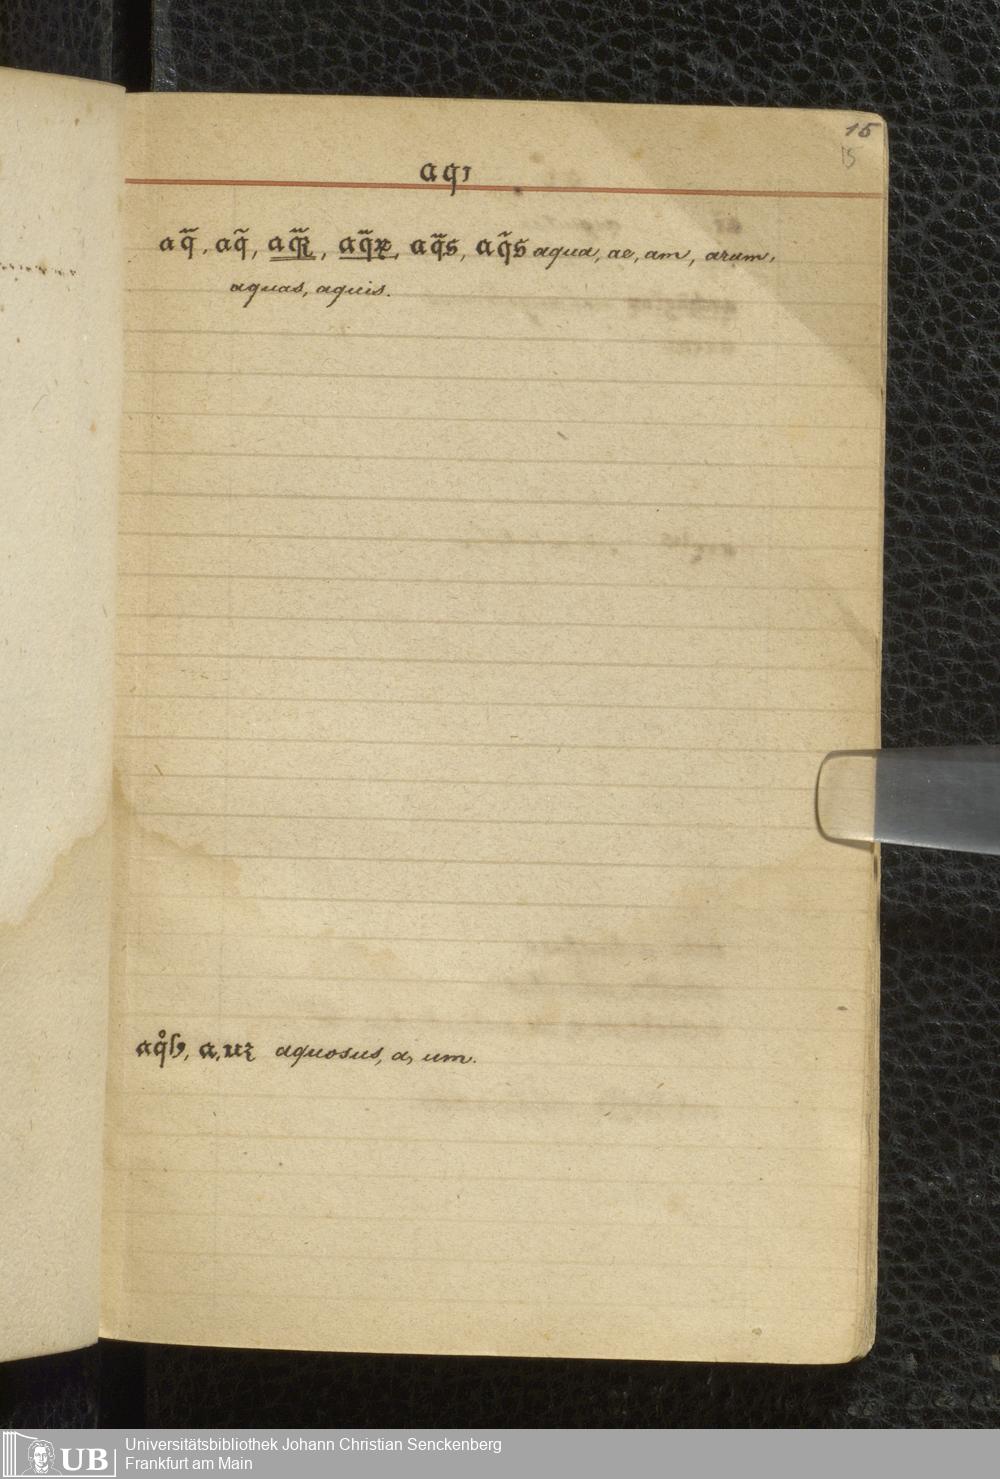 15
15
aqꝛ
aq̃, aq̃, aq̃ꝶ, aq̃ꝝ, aq̃s, aq̃s aqua, ae, am, arum,
aquas, aquis.
aq̊ſꝰ, a, uꝫ aquosus, a, um.
UB Universitätsbibliothek Johann Christian Senckenberg
Frankfurt am Main